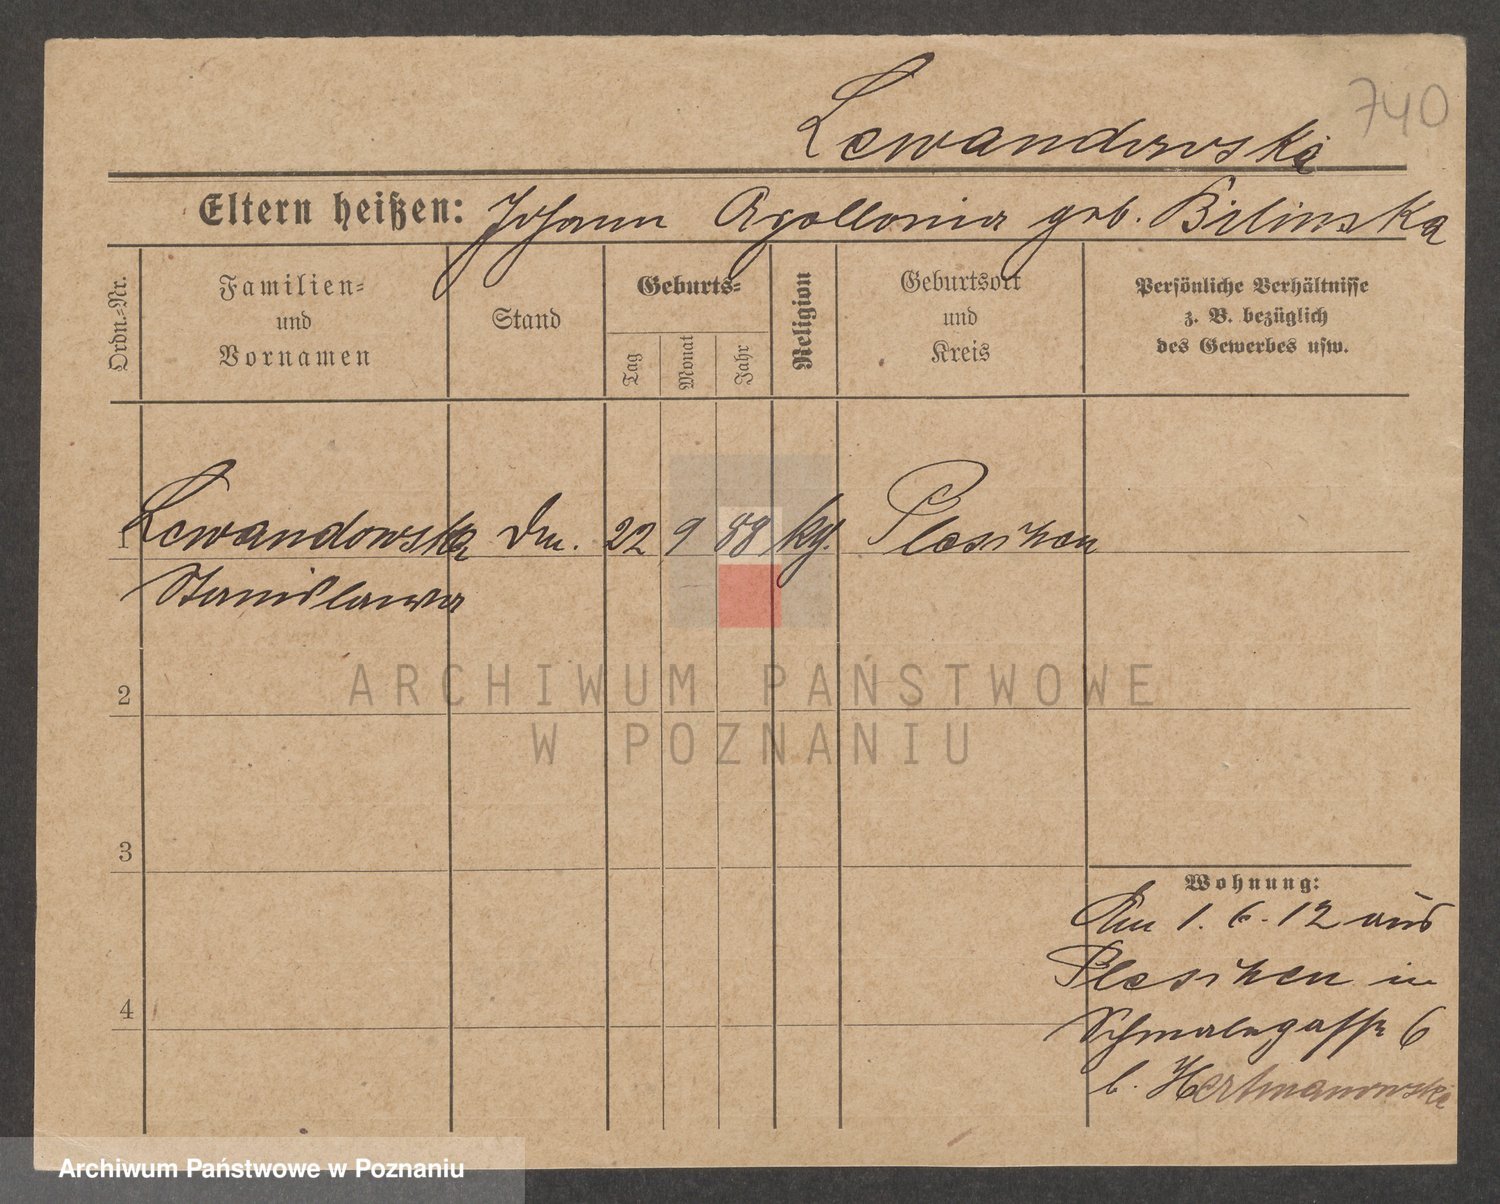 740
Lewandowska
Eltern heißen: Johann Apollonia geb. Bilinska
Ordn.-Nr.
Familien-
und
Vornamen
Stand
Geburts-
Tag
Monat
Jahr
Religion
Geburtsort
und
Kreis
Persönliche Verhältnisse
z. B. bezüglich
des Gewerbes usw.
1 Lewandowska 22 9 88
Stanislawa
2
3
4
Wohnung:
Am 1. 6. 12 aus
in
Schmalegasse 6
b.
ARCHIWUM PAŃSTWOWE
W POZNANIU
Archiwum Państwowe w Poznaniu